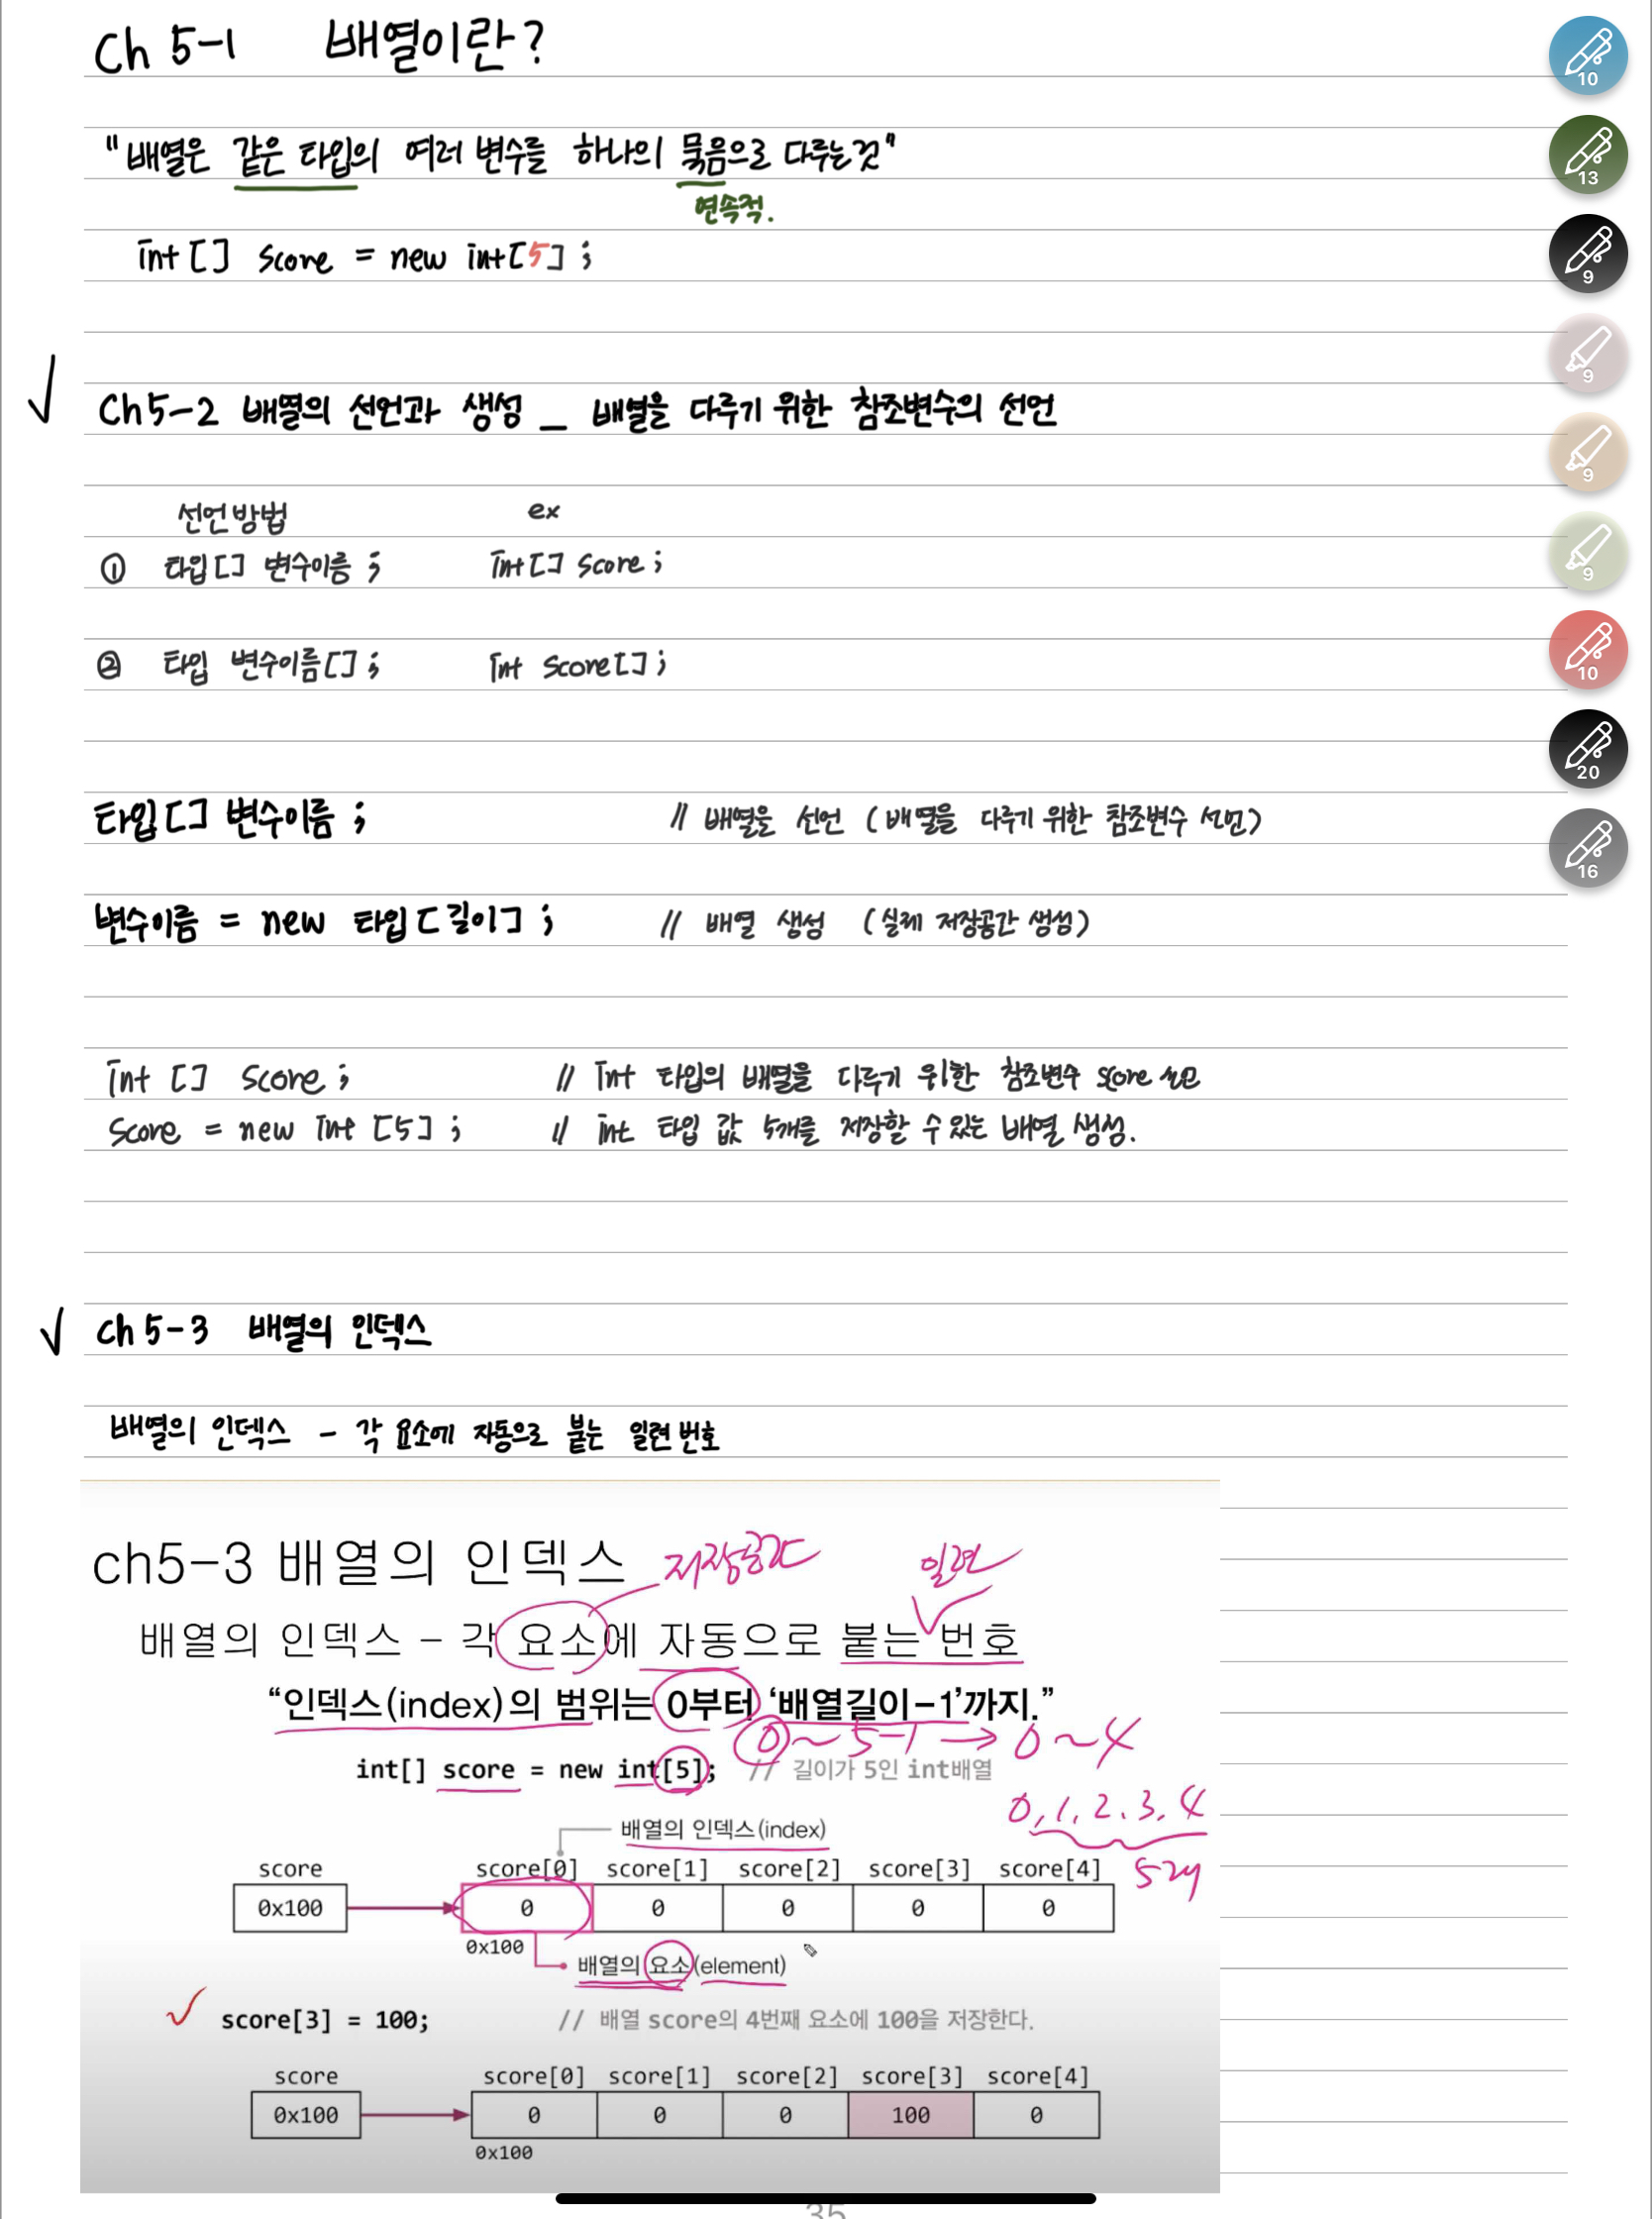 Ch 5-1 배열이란?
"배열은 같은 타입의 여러 변수를 하나의 묶음으로 다루는것"
연속적.
int [] score = new int[5] ;
Ch 5-2 배열의 선언과 생성 _ 배열을 다루기 위한 참조변수의 선언
선언방법 ex
① 타입[] 변수이름 ; int[] score ;
② 타입 변수이름[] ; int score[] ;
타입[] 변수이름 ; // 배열을 선언 (배열을 다루기 위한 참조변수 선언)
변수이름 = new 타입[길이] ; // 배열 생성 (실제 저장공간 생성)
int [] score ; // int 타입의 배열을 다루기 위한 참조변수 score 선언
score = new int [5] ; // int 타입 값 5개를 저장할 수 있는 배열 생성.
Ch 5-3 배열의 인덱스
배열의 인덱스 - 각 요소에 자동으로 붙는 일련 번호
ch5-3 배열의 인덱스 저장공간 일련
배열의 인덱스 – 각 요소에 자동으로 붙는 번호
“인덱스(index)의 범위는 0부터 ‘배열길이-1’까지.”
0 ~ 5-1 → 0 ~ 4
int[] score = new int[5]; // 길이가 5인 int배열
0, 1, 2, 3, 4
배열의 인덱스(index)
5개
score score[0] score[1] score[2] score[3] score[4]
0x100 0 0 0 0 0
0x100
배열의 요소(element)
score[3] = 100; // 배열 score의 4번째 요소에 100을 저장한다.
score score[0] score[1] score[2] score[3] score[4]
0x100 0 0 0 100 0
0x100
35
10
13
9
9
9
9
10
20
16